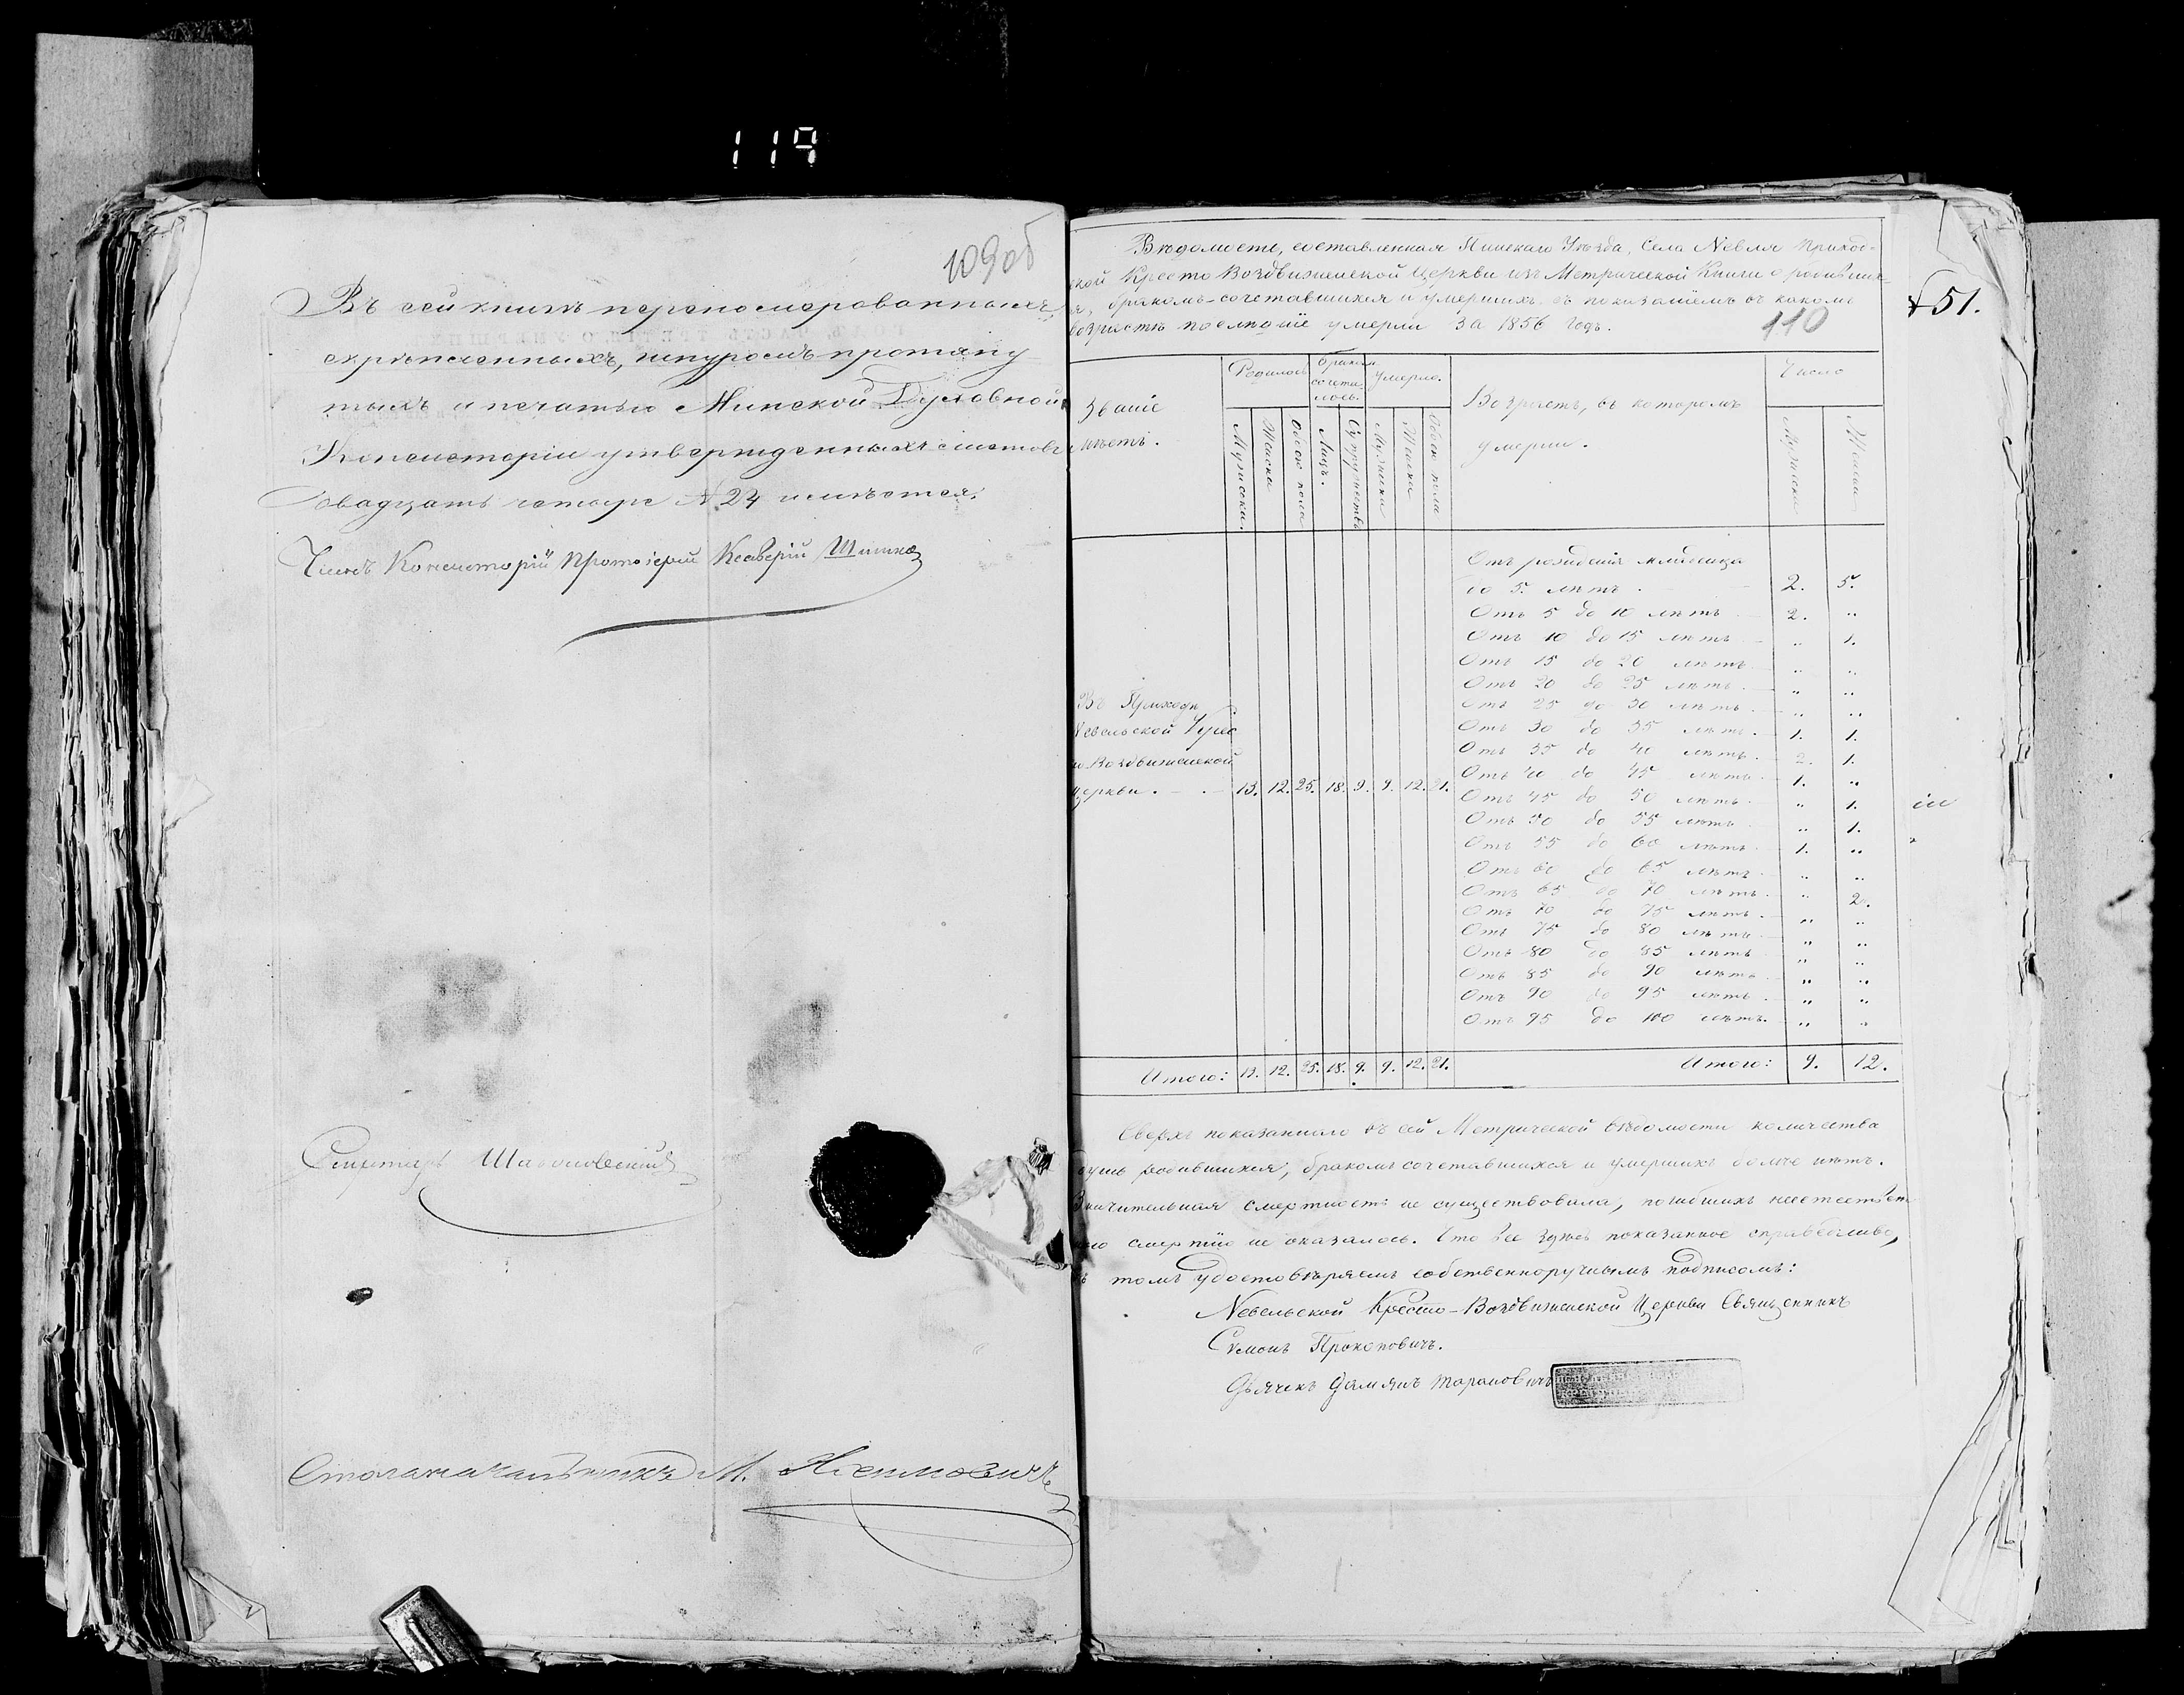 119
109об
Въ сей книгѣ перенумерованныхъ,
скрѣпленныхъ, шнуромъ протяну
тыхъ и печатью Минской Духовной
Консисторіи утвержденныхъ листовъ
двадцать четыре № 24 имѣется.
Членъ Консисторіи Протоіерей Ксаверій
Секретарь
Столоначальникъ М.
Вѣдомость, составленная Пинскаго Уѣзда, Села Невля Приход-
ской Кресто Воздвиженской Церкви изъ Метрической Книги о родивших
бракомъ-сочетавшихся и умершихъ съ показаніемъ въ какомъ
возрастѣ послѣдніе умерли за 1856 Годъ.
110
51.
Званіе
мѣстъ.
Родилось
Бракомъ
сочета-
лось.
Умерло.
Возрастъ, въ которомъ
умерли.
Число
Мужеска.
Женска
Обоего пола
Лицъ.
Супружествъ
Мужеска
Женска
Обоего пола
Мужеска
Женска
Отъ рожденія младенца
до 5. лѣтъ . 2. 5.
Отъ 5 до 10 лѣтъ 2. "
Отъ 10 до 15 лѣтъ " 1.
Отъ 15 до 20 лѣтъ " "
Отъ 20 до 25 лѣтъ. " "
Отъ 25 до 30 лѣтъ. " "
Отъ 30 до 35 лѣтъ. 1. 1.
Отъ 35 до 40 лѣтъ. 2. 1.
Отъ 40 до 45 лѣтъ 1. "
Отъ 45 до 50 лѣтъ. " 1.
Отъ 50 до 55 лѣтъ " 1.
Отъ 55 до 60 лѣтъ. 1. "
Отъ 60 до 65 лѣтъ " "
Отъ 65 до 70 лѣтъ. " 2.
Отъ 70 до 75 лѣтъ. " "
Отъ 75 до 80 лѣтъ " "
Отъ 80 до 85 лѣтъ " "
Отъ 85 до 90 лѣтъ. " "
Отъ 90 до 95 лѣтъ. " "
Отъ 95 до 100 лѣтъ. " "
Въ Приходѣ
Невельской Крес
то Воздвиженской
Церкви . 13. 12. 25. 18. 9. 9. 12. 21.
Итого: 13. 12. 25. 18. 9. 9. 12. 21. Итого: 9. 12.
Сверхъ показаннаго въ сей Метрической вѣдомости количества
душъ родившихся, бракомъ сочетавшихся и умершихъ болѣе нѣтъ.
Значительная смертность не существовала, погибшихъ неестествен
ною смертію не оказалось. Что все здѣсь показанное справедливо,
въ томъ удостовѣряемъ собственноручнымъ подписомъ:
Невельской Кресто-Воздвиженской Церкви Священникъ
Симонъ Прокоповичъ.
Дьячекъ Дамянъ Тарановичъ